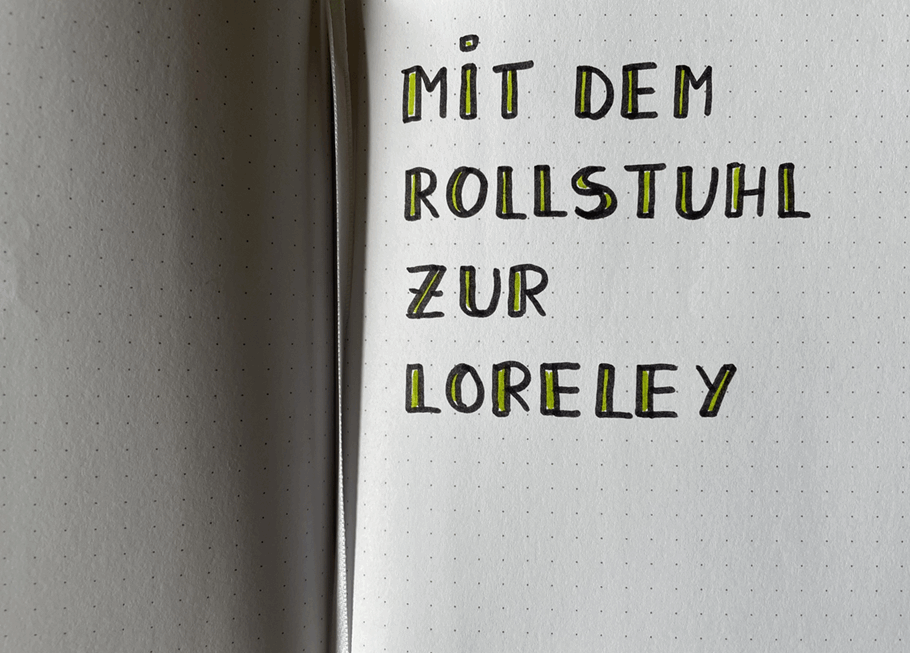 MiT DEM
ROLLSTUHL
ZUR
LORELEY